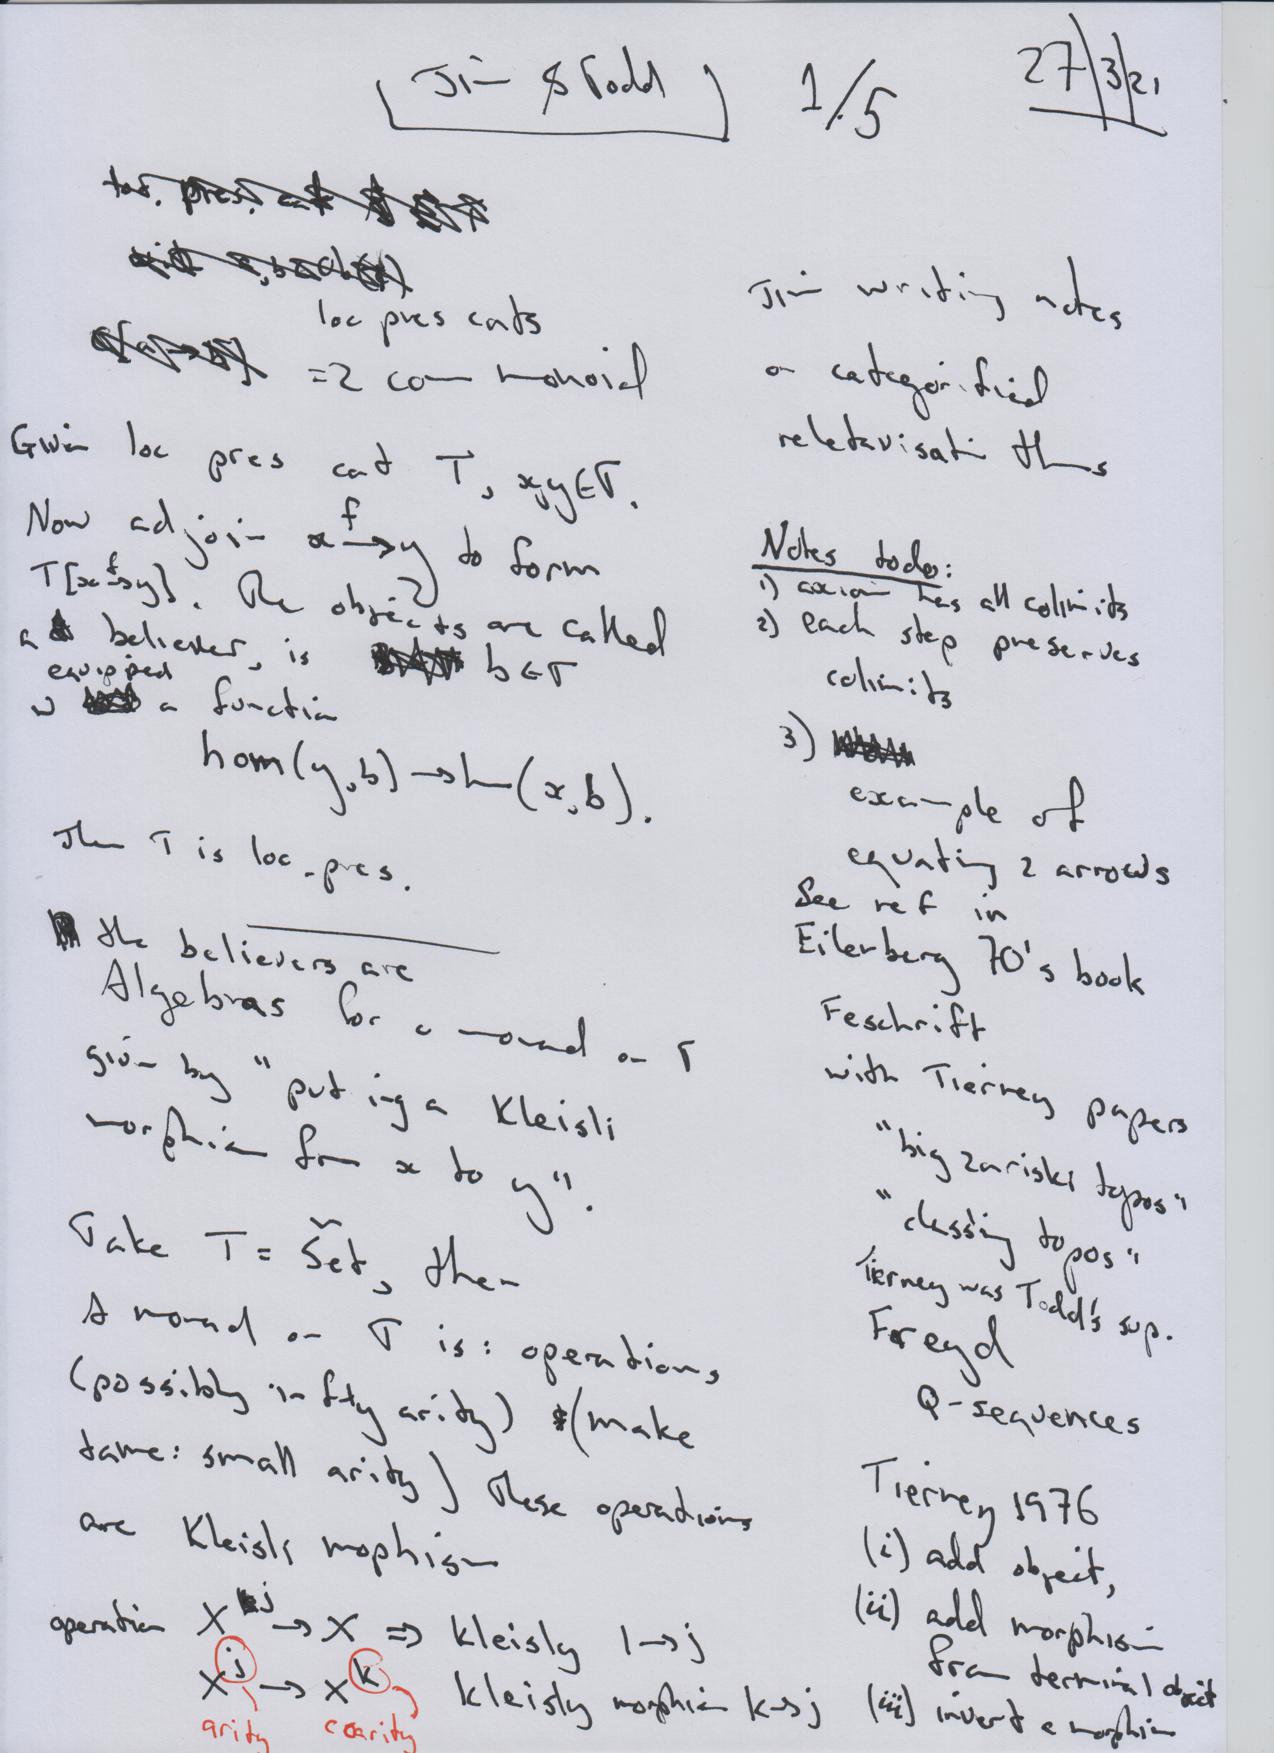 Jim & Todd
1/5
27/3/21
loc pres cats
= 2 com monoid
Given loc pres cat T, x,y∈T.
Now adjoin x f→ y to form
T[x f→ y]. The objects are called
a believer, is b∈T
equipped
w a function
hom(y,b) → hom(x,b).
Then T is loc. pres.
the believers are
Algebras for a monad on T
given by "putting a Kleisli
morphism from x to y".
Take T = Set, then
A monad on T is: operations
(possibly infty arity) (make
tame: small arity) These operations
are Kleisli mophism
operation X^j → X ⇒ kleisly 1→j
X^j → X^k kleisly morphism k→j
arity coarity
Jim writing notes
on categorified
reletavisatin thms
Notes todo:
1) axiom has all colimits
2) each step preserves
colimits
3)
example of
equating 2 arrows
See ref in
Eilenberg 70's book
Feschrift
with Tierney papers
"big zariski topos"
"classing topos"
Tierney was Todd's sup.
Freyd
Q-sequences
Tierney 1976
(i) add object,
(ii) add morphism
from terminal object
(iii) invert a morphism